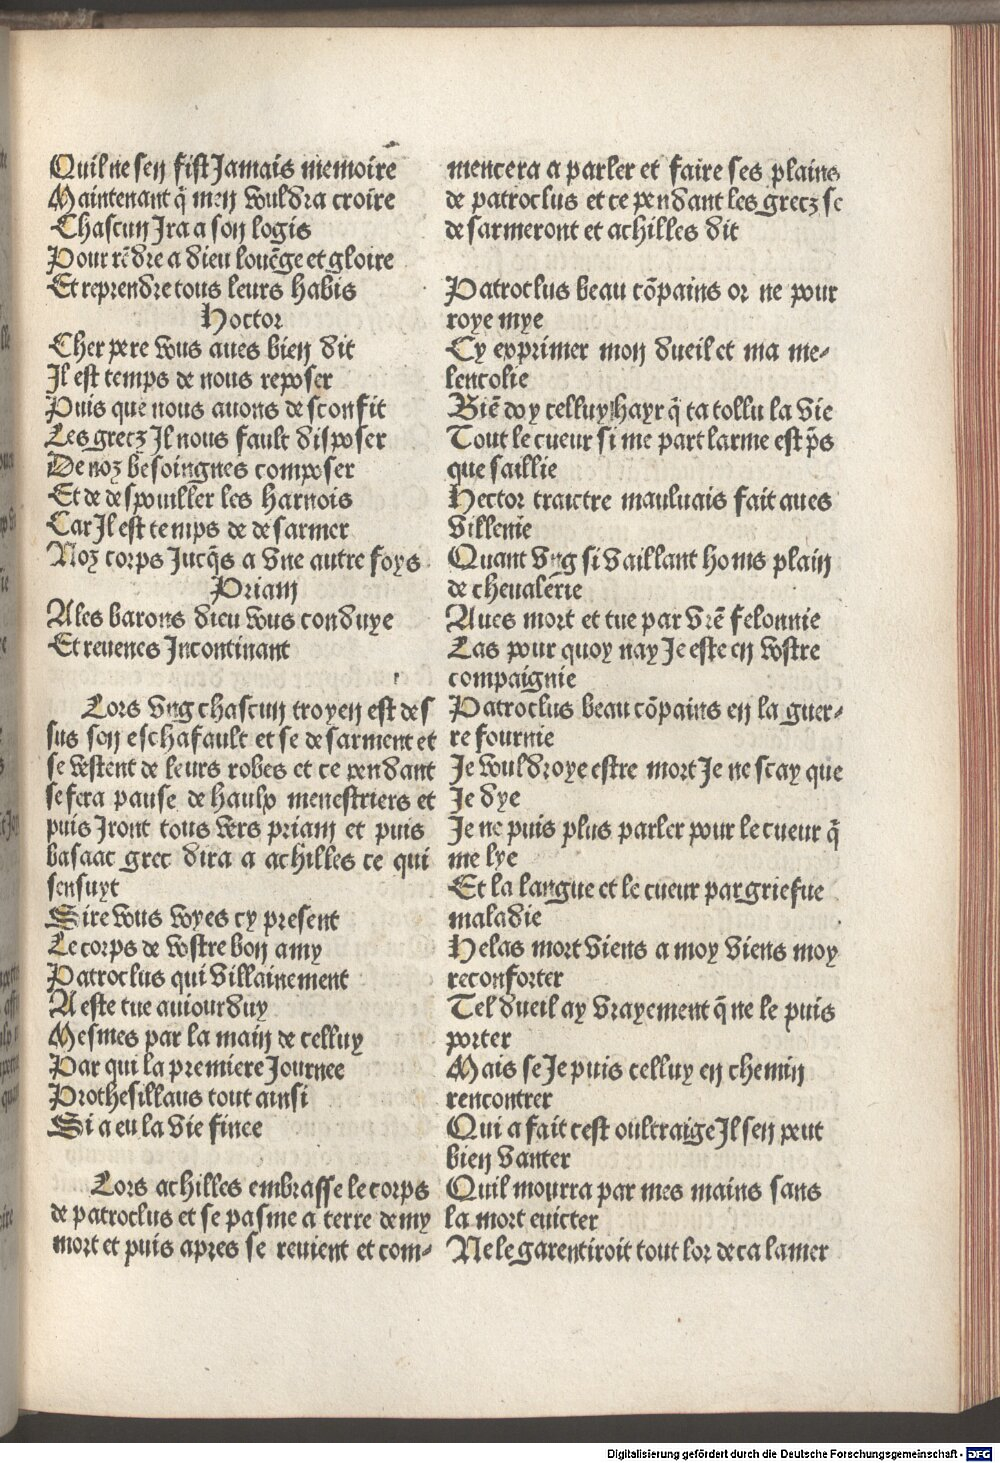 Quil ne sen fist Jamais memoire
Maintenant q̃ men vouldra croire
Chascun Jra a son logis
Pour rẽdre a dieu louẽge et gloire
Et reprendre tous leurs habis
Hoctor
Cher pere vous aues bien dit
Il est temps de nous reposer
Puis que nous auons desconfit
Les grecz Jl nous fault disposer
De noz besoingnes composer
Et de despouiller les harnois
Car Jl est temps de desarmer
Noz corps Jucq̃s a vne autre foys
Priam
Ales barons dieu vous conduye
Et reuenes Jncontinant
Lors vng chascun troyen est des
sus son eschafault et se desarment et
se vestent de leurs robes et ce pendant
se fera pause de haulx menestriers et
puis Jront tous vers priam et puis
basaac grec dira a achilles ce qui
sensuyt
Sire vous voyes cy present
Le corps de vostre bon amy
Patroclus qui villainement
A este tue auiourduy
Mesmes par la main de celluy
Par qui la premiere Journee
Prothesillaus tout ainsi
Si a eu la vie finee
Lors achilles embrasse le corps
de patroclus et se pasme a terre demy
mort et puis apres se reuient et com-
mencera a parler et faire ses plains
de patroclus et ce pendant les grecz se
desarmeront et achilles dit
Patroclus beau cõpains or ne pour
roye mye
Cy exprimer mon dueil et ma me-
lencolie
Biẽ doy celluy hayr q̃ ta tollu la vie
Tout le cueur si me part larme est p̃s
que saillie
Hector traictre mauluais fait aues
villenie
Quant vng si vaillant homs plain
de cheualerie
Aues mort et tue par vrẽ felonnie
Las pour quoy nay Je este en vostre
compaignie
Patroclus beau cõpains en la guer-
re fournie
Je vouldroye estre mort Je ne scay que
Je dye
Je ne puis plus parler pour le cueur q̃
me lye
Et la langue et le cueur par griefue
maladie
Helas mort viens a moy viens moy
reconforter
Tel dueil ay vrayement q̃ ne le puis
porter
Mais se Je puis celluy en chemin
rencontrer
Qui a fait cest oultraige Jl sen peut
bien vanter
Quil mourra par mes mains sans
la mort euicter
Ne le garentiroit tout lor deca la mer
Digitalisierung gefördert durch die Deutsche Forschungsgemeinschaft - DFG